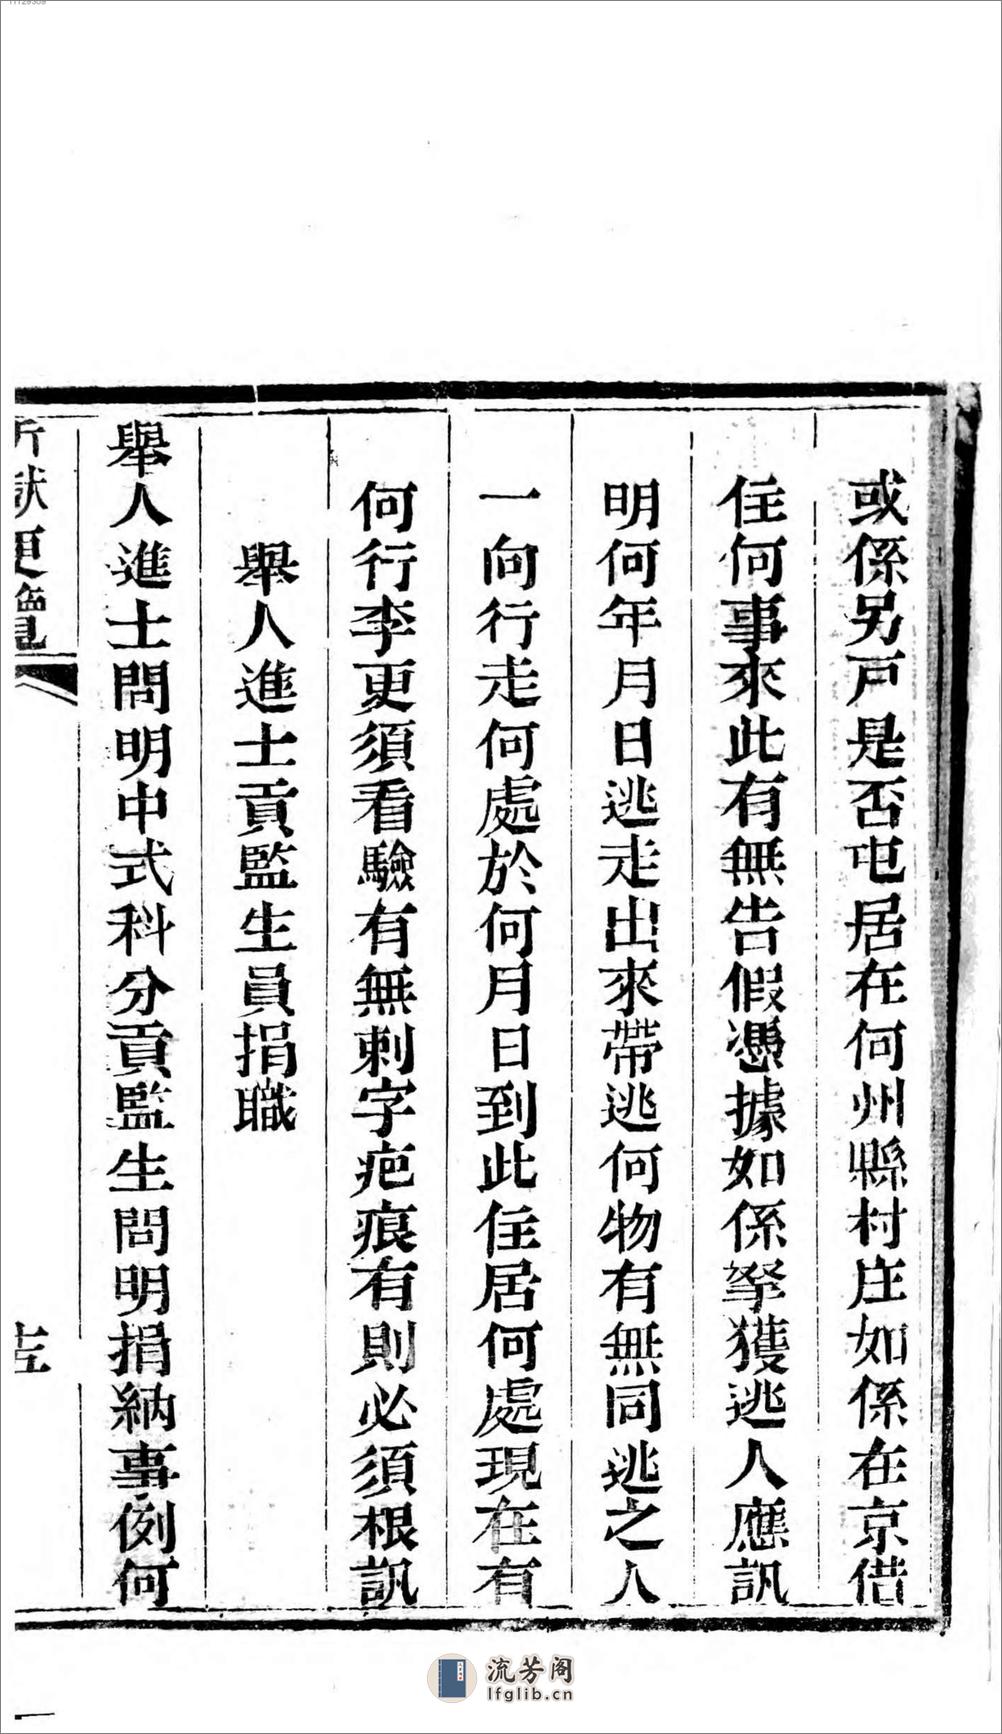 或係另戸是否屯居在何州縣村庄如係在京借
住何事來此有無告假憑據如係拏獲逃人應訊
明何年月日逃走出來帶逃何物有無同逃之人
一向行走何處於何月日到此住居何處現在有
何行李更須看驗有無刺字疤痕有則必須根訊
舉人進士貢監生員捐職
舉人進士問明中式科分貢監生問明捐納事例何
折獄便覽
流芳阁
lfglib.cn